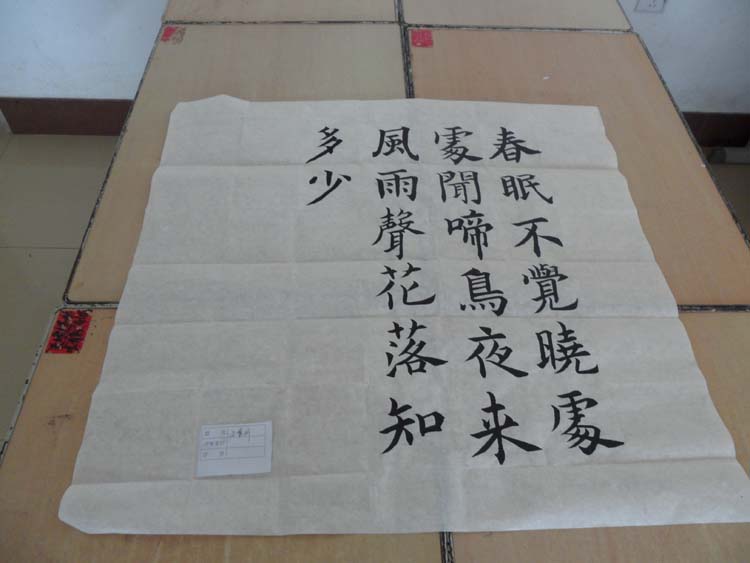 春眠不覺曉處
處聞啼鳥夜来
風雨聲花落知
多少